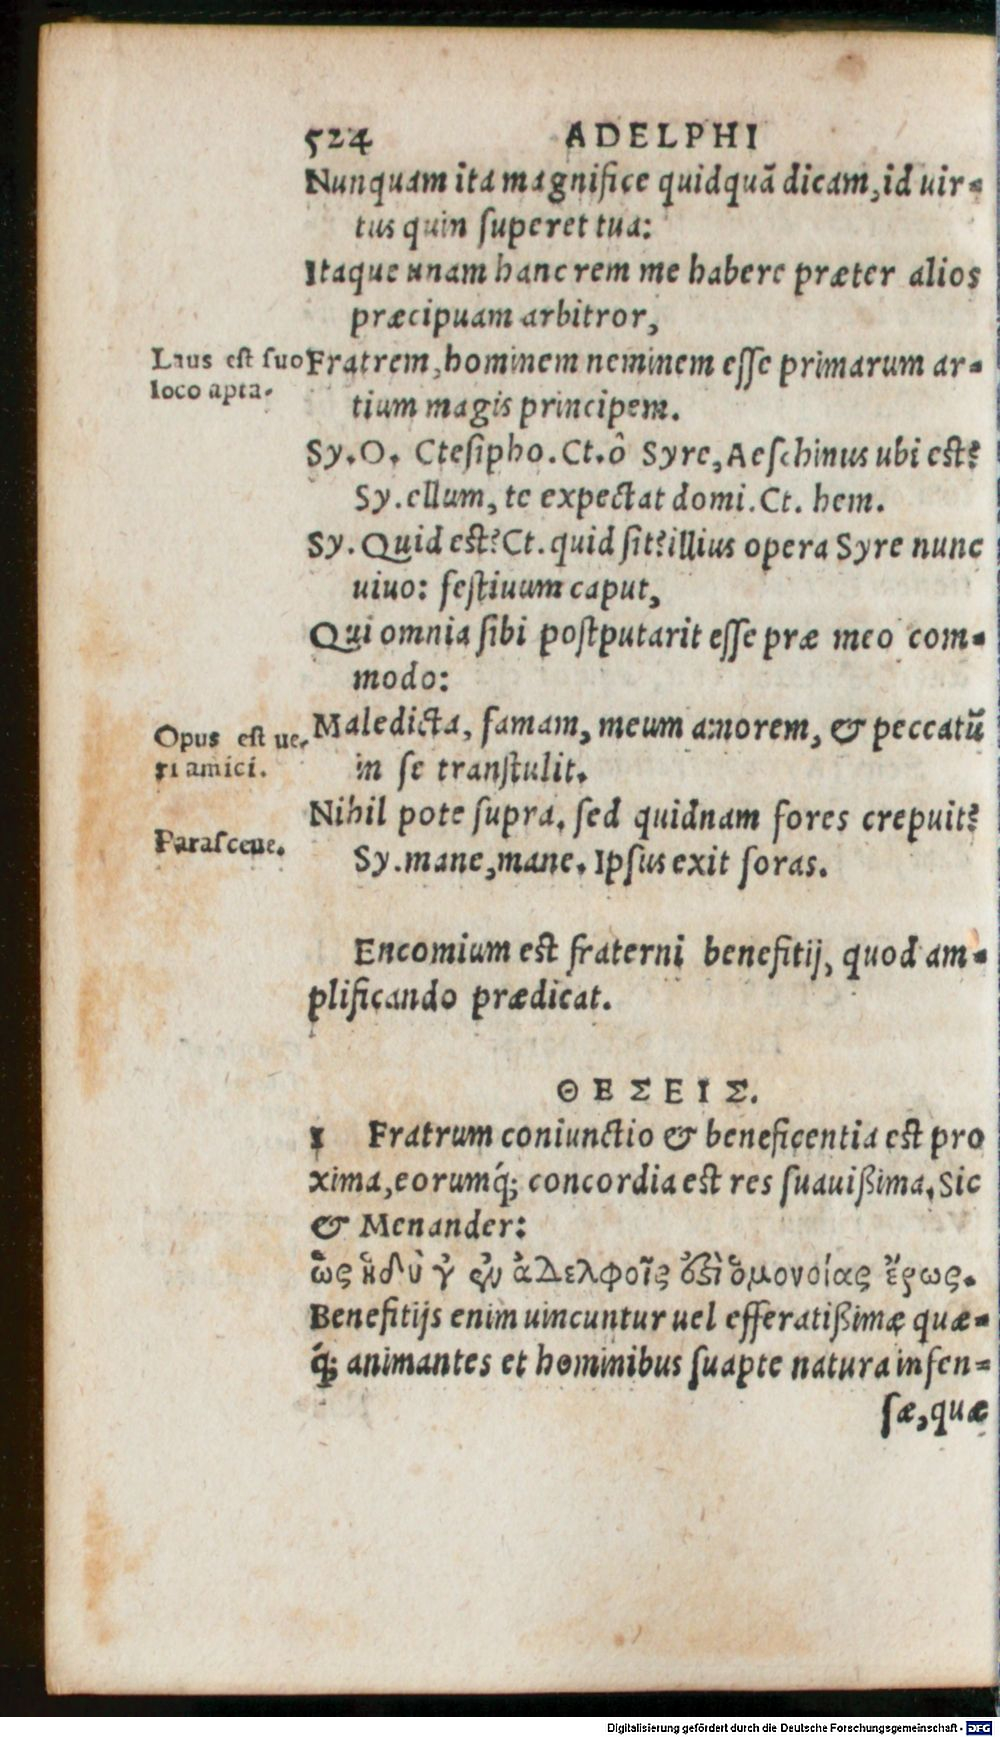 524 ADELPHI
Nunquam ita magnifice quidquā dicam, id uir-
tus quin ſuperet tua:
Itaque unam hanc rem me habere præter alios
præcipuam arbitror,
Laus eſt ſuo
loco apta.
Fratrem, hominem neminem eſſe primarum ar-
tium magis principem.
Sy. O. Cteſipho. Ct. ô Syre, Aeſchinus ubi eſt?
Sy. ellum, te expectat domi. Ct. hem.
Sy. Quid eſt? Ct. quid ſit? illius opera Syre nunc
uiuo: feſtiuum caput,
Qui omnia ſibi poſtputarit eſſe præ meo com-
modo:
Opus eſt ue-
ri amici.
Maledicta, famam, meum amorem, & peccatũ
in ſe tranſtulit.
Nihil pote ſupra. ſed quidnam fores crepuit?
Paraſceue.
Sy. mane, mane. Ipſus exit foras.
Encomium eſt fraterni benefitij, quod am-
plificando prædicat.
ΘΕΣΕΙΣ.
1 Fratrum coniunctio & beneficentia eſt pro
xima, eorumq́; concordia eſt res ſuauißima. Sic
& Menander:
ὥς ἡδὺ γ' ἐν ἀδελφοῖς ἐστὶ ὁμονοίας ἔρως.
Benefitijs enim uincuntur uel efferatißimæ quæ-
q́; animantes et hominibus ſuapte natura infen-
ſæ, quæ
Digitalisierung gefördert durch die Deutsche Forschungsgemeinschaft - DFG